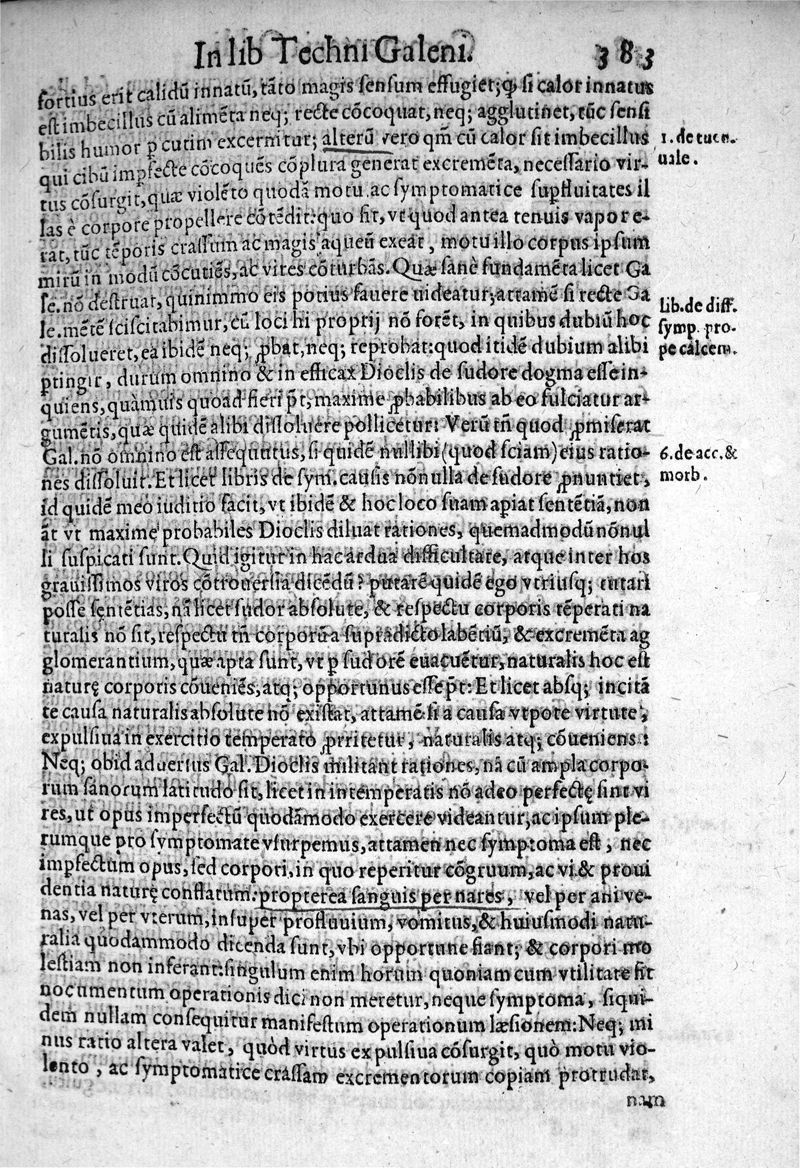 In lib Techni Galeni. 383
fortius erit calidū innatū, tāto magis sensum effugiet; ꝙ si calor innatus
est imbecillus cū alimēta neq; recte cōcoquat, neq; agglutinet, tūc sensi
bilis humor p cutim excernitur; alterū vero qm̄ cū calor sit imbecillus
1. de tuen.
uale.
qui cibū impfecte cōcoquēs cōplura generat excremēta, necessario vir-
tus cōsurgit, quæ violēto quodā motu ac symptomatice supfluitates il
las è corpore propellere cōtēdit: quo fit, vt quod antea tenuis vapor e-
rat, tūc tēporis crassum ac magis aqueū exeat, motu illo corpus ipsum
mirū in modū cōcutiēs, ac vires cōturbās. Quæ sanè fundamēta licet Ga
le. nō destruat, quinimmo eis potius fauere uideatur; attamē si recte Ga
lib. de diff.
symp. pro-
pe calcem.
le. mētē sciscitabimur, cū loci hi proprij nō forēt, in quibus dubiū hoc
dissolueret, ea ibidē neq; ꝓbat, neq; reprobat: quod itidē dubium alibi
ptingit, durum omnino & in efficax Dioclis de sudore dogma esse in-
quiens, quàmuis quoad fieri p̄t, maxime ꝓbabilibus ab eo fulciatur ar-
gumētis, quæ quidē alibi dissoluere pollicetur: Verū tn̄ quod ꝓmiserat
Gal. nō omnino est assequutus, si quidē nullibi (quod sciam) eius ratio-
6. de acc. &
morb.
nes dissoluit. Et licet libris de sym. causis nōnulla de sudore ꝓnuntiet,
id quidē meo iuditio facit, vt ibidē & hoc loco suam apiat sentētiā, non
āt vt maxime probabiles Dioclis diluat rationes, quemadmodū nōnul
li suspicati sunt. Quid igitur in hac ardua difficultate, atque inter hos
grauissimos viros cōtrouersia dicēdū? putarē quidē ego vtriusq; tutari
posse sentētias, nā licet sudor absolute, & respectu corporis tēperati na
turalis nō sit, respectu tn̄ corporū a supradicto labētiū, & excremēta ag
glomerantium, quæ apta sunt, vt p sudorē euacuētur, naturalis hoc est
naturę corporis cōueniēs, atq; opportunus esse p̄t: Et licet absq; incitā
te causa naturalis absolute nō existat, attamē si a causa vtpote virtute,
expulsiua in exercitio temperato ꝓrritetur, naturalis atq; cōueniens:
Neq; obid aduersus Gal. Dioclis militant rationes, nā cū ampla corpo-
rum sanorum latitudo sit, licet in intemperatis nō adeo perfectę sint vi
res, ut opus imperfectū quodāmodo exercere videantur, ac ipsum ple-
rumque pro symptomate vsurpemus, attamen nec symptoma est, nec
impfectum opus, sed corpori, in quo reperitur cōgruum, ac vi & proui
dentia naturę conflatum: propterea sanguis per nares, vel per ani ve-
nas, vel per vterum, insuper profluuium, vomitus, & huiusmodi natu-
ralia quodammodo dicenda sunt, vbi opportune fiant; & corpori mo
lestiam non inferant: singulum enim horum quoniam cum vtilitate fit
nocumentum operationis dici non meretur, neque symptoma, siqui-
dem nullam consequitur manifestum operationum læsionem: Neq; mi
nus ratio altera valet, quòd virtus expulsiua cōsurgit, quò motu vio-
lento, ac symptomatice crassam excrementorum copiam protrudat,
nam